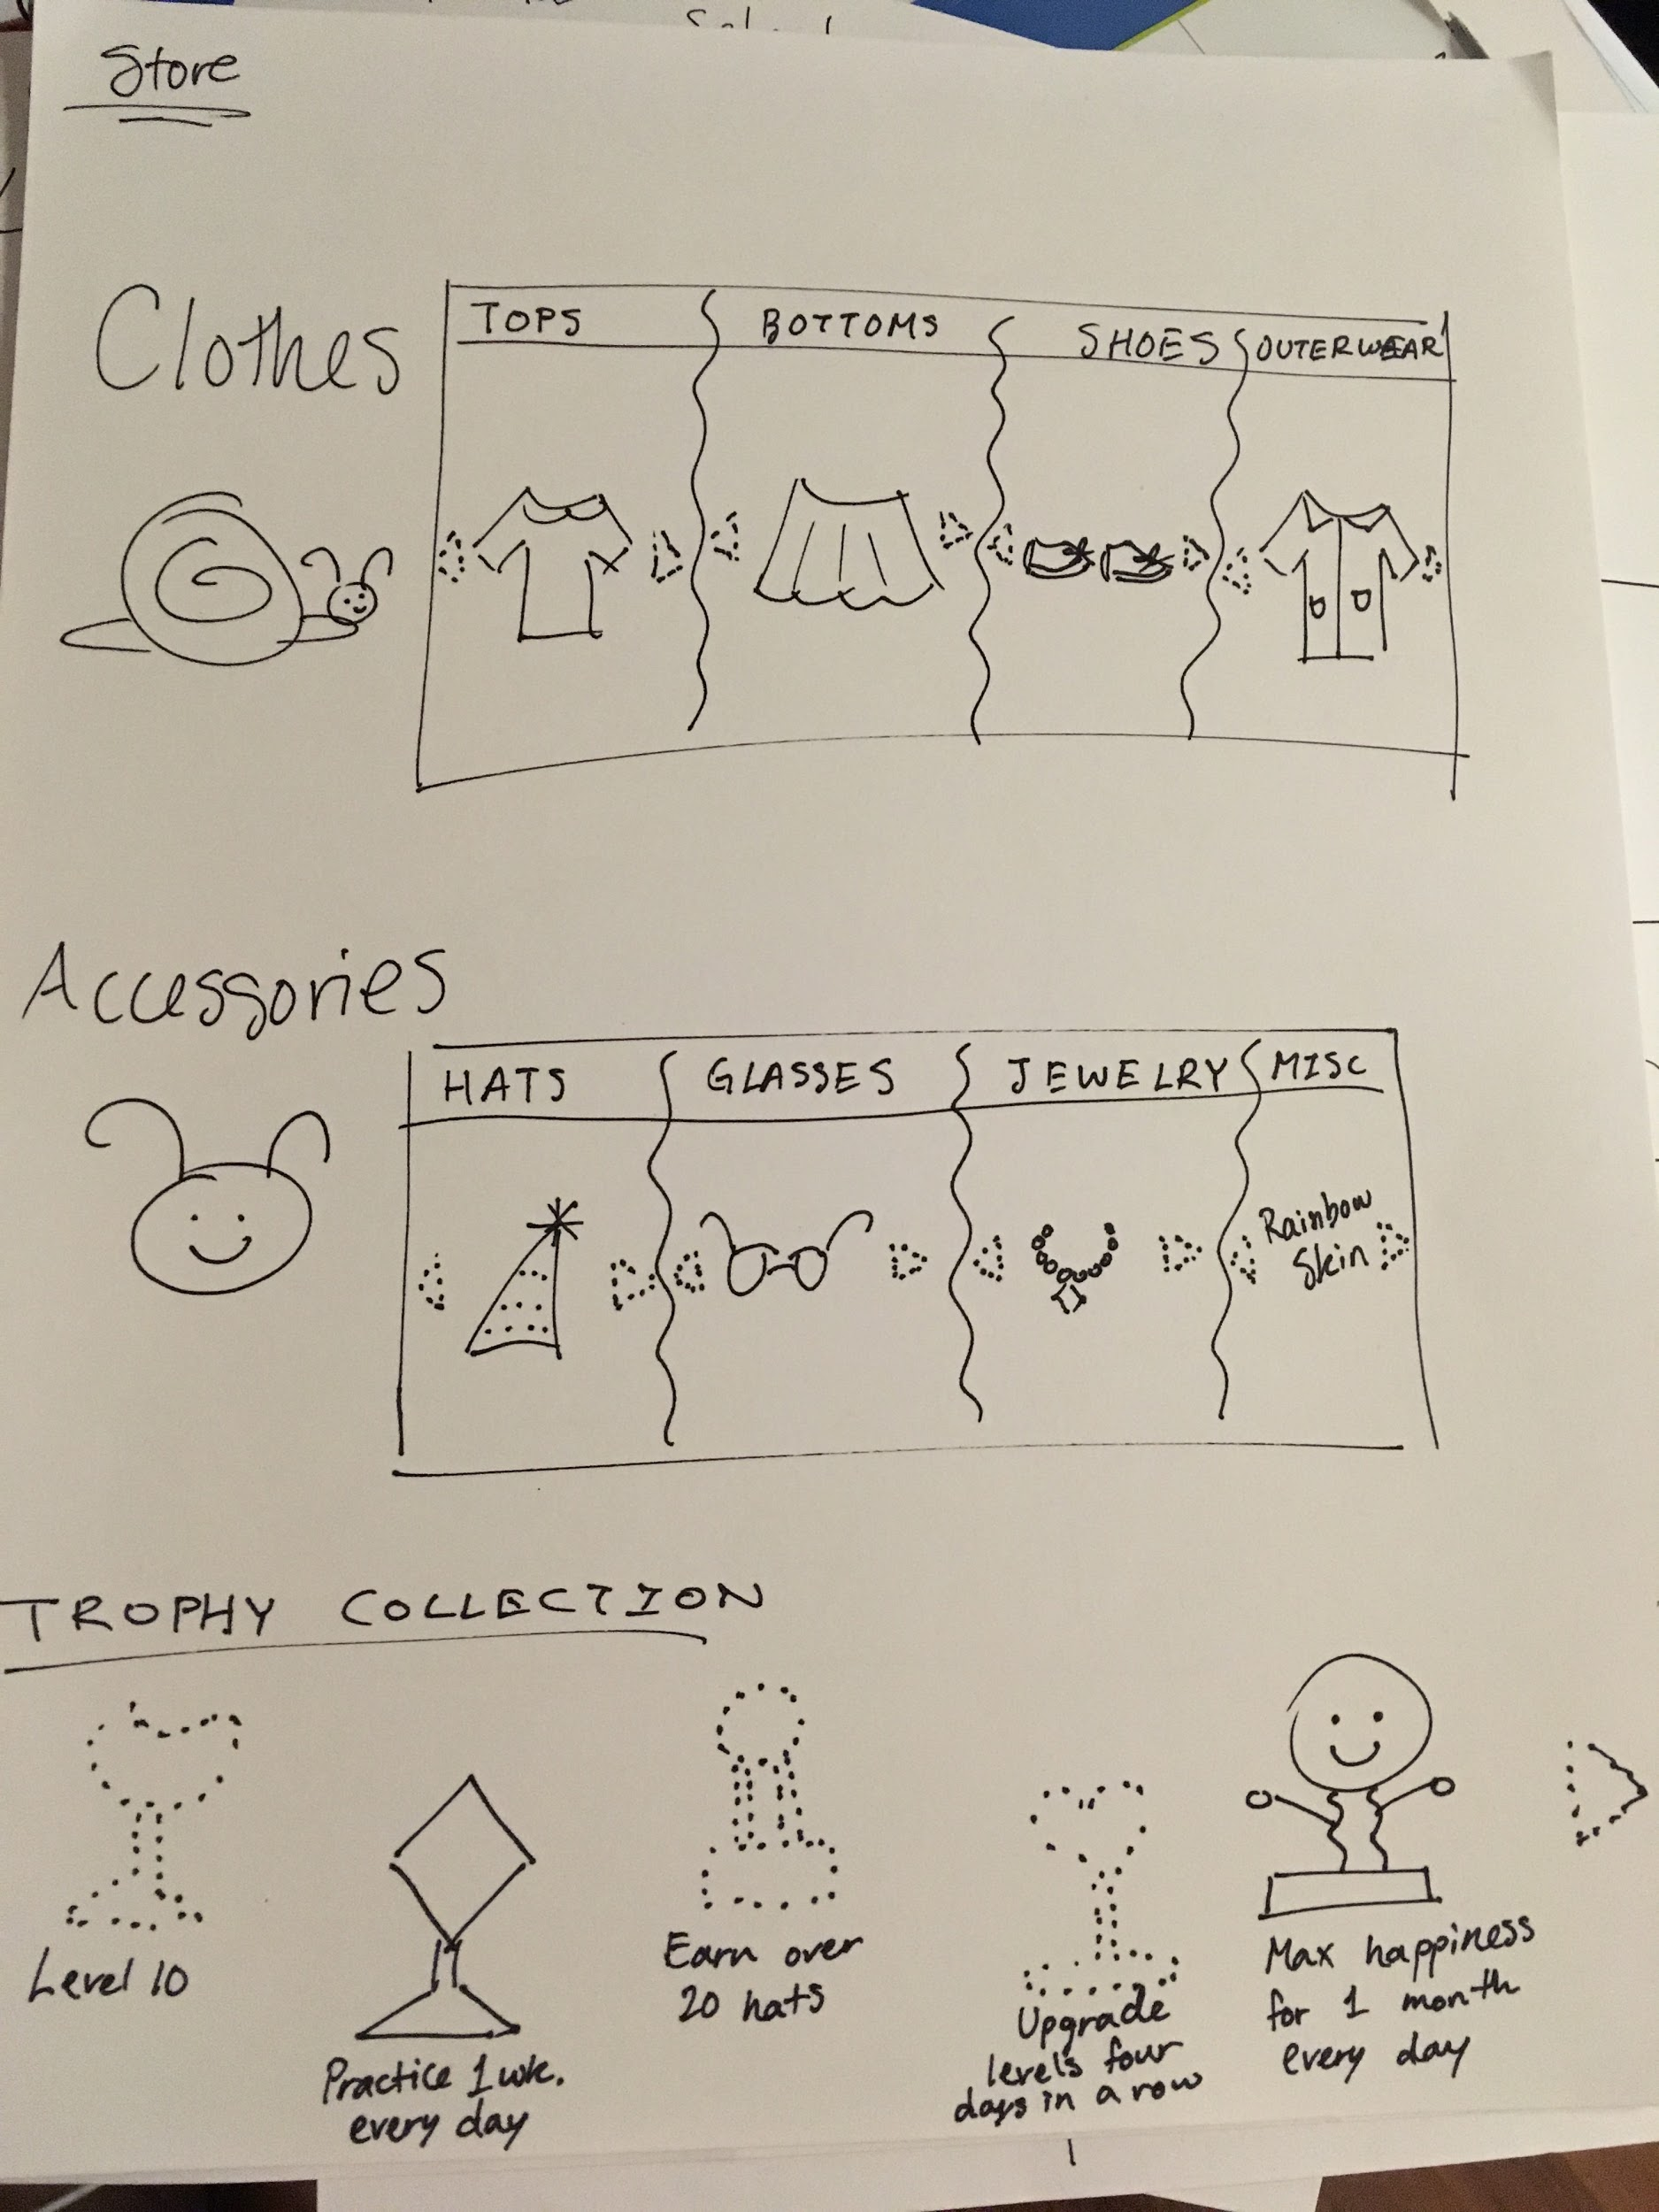 Store
Clothes
TOPS BOTTOMS SHOES OUTERWEAR
Accessories
HATS GLASSES JEWELRY MISC
Rainbow
Skin
TROPHY COLLECTION
Level 10
Practice 1 wk.
every day
Earn over
20 hats
Upgrade
levels four
days in a row
Max happiness
for 1 month
every day